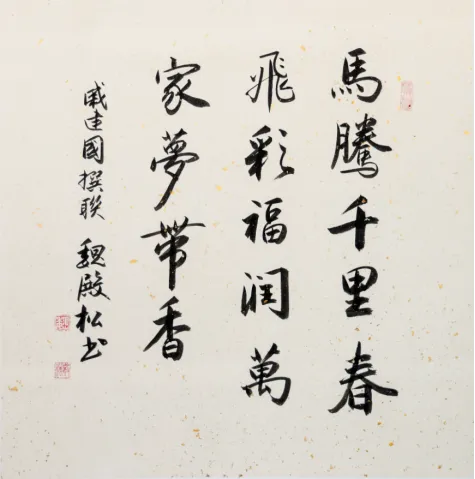 馬騰千里春
飛彩福润萬
家夢帶香
戚建國撰联
魏殿松书